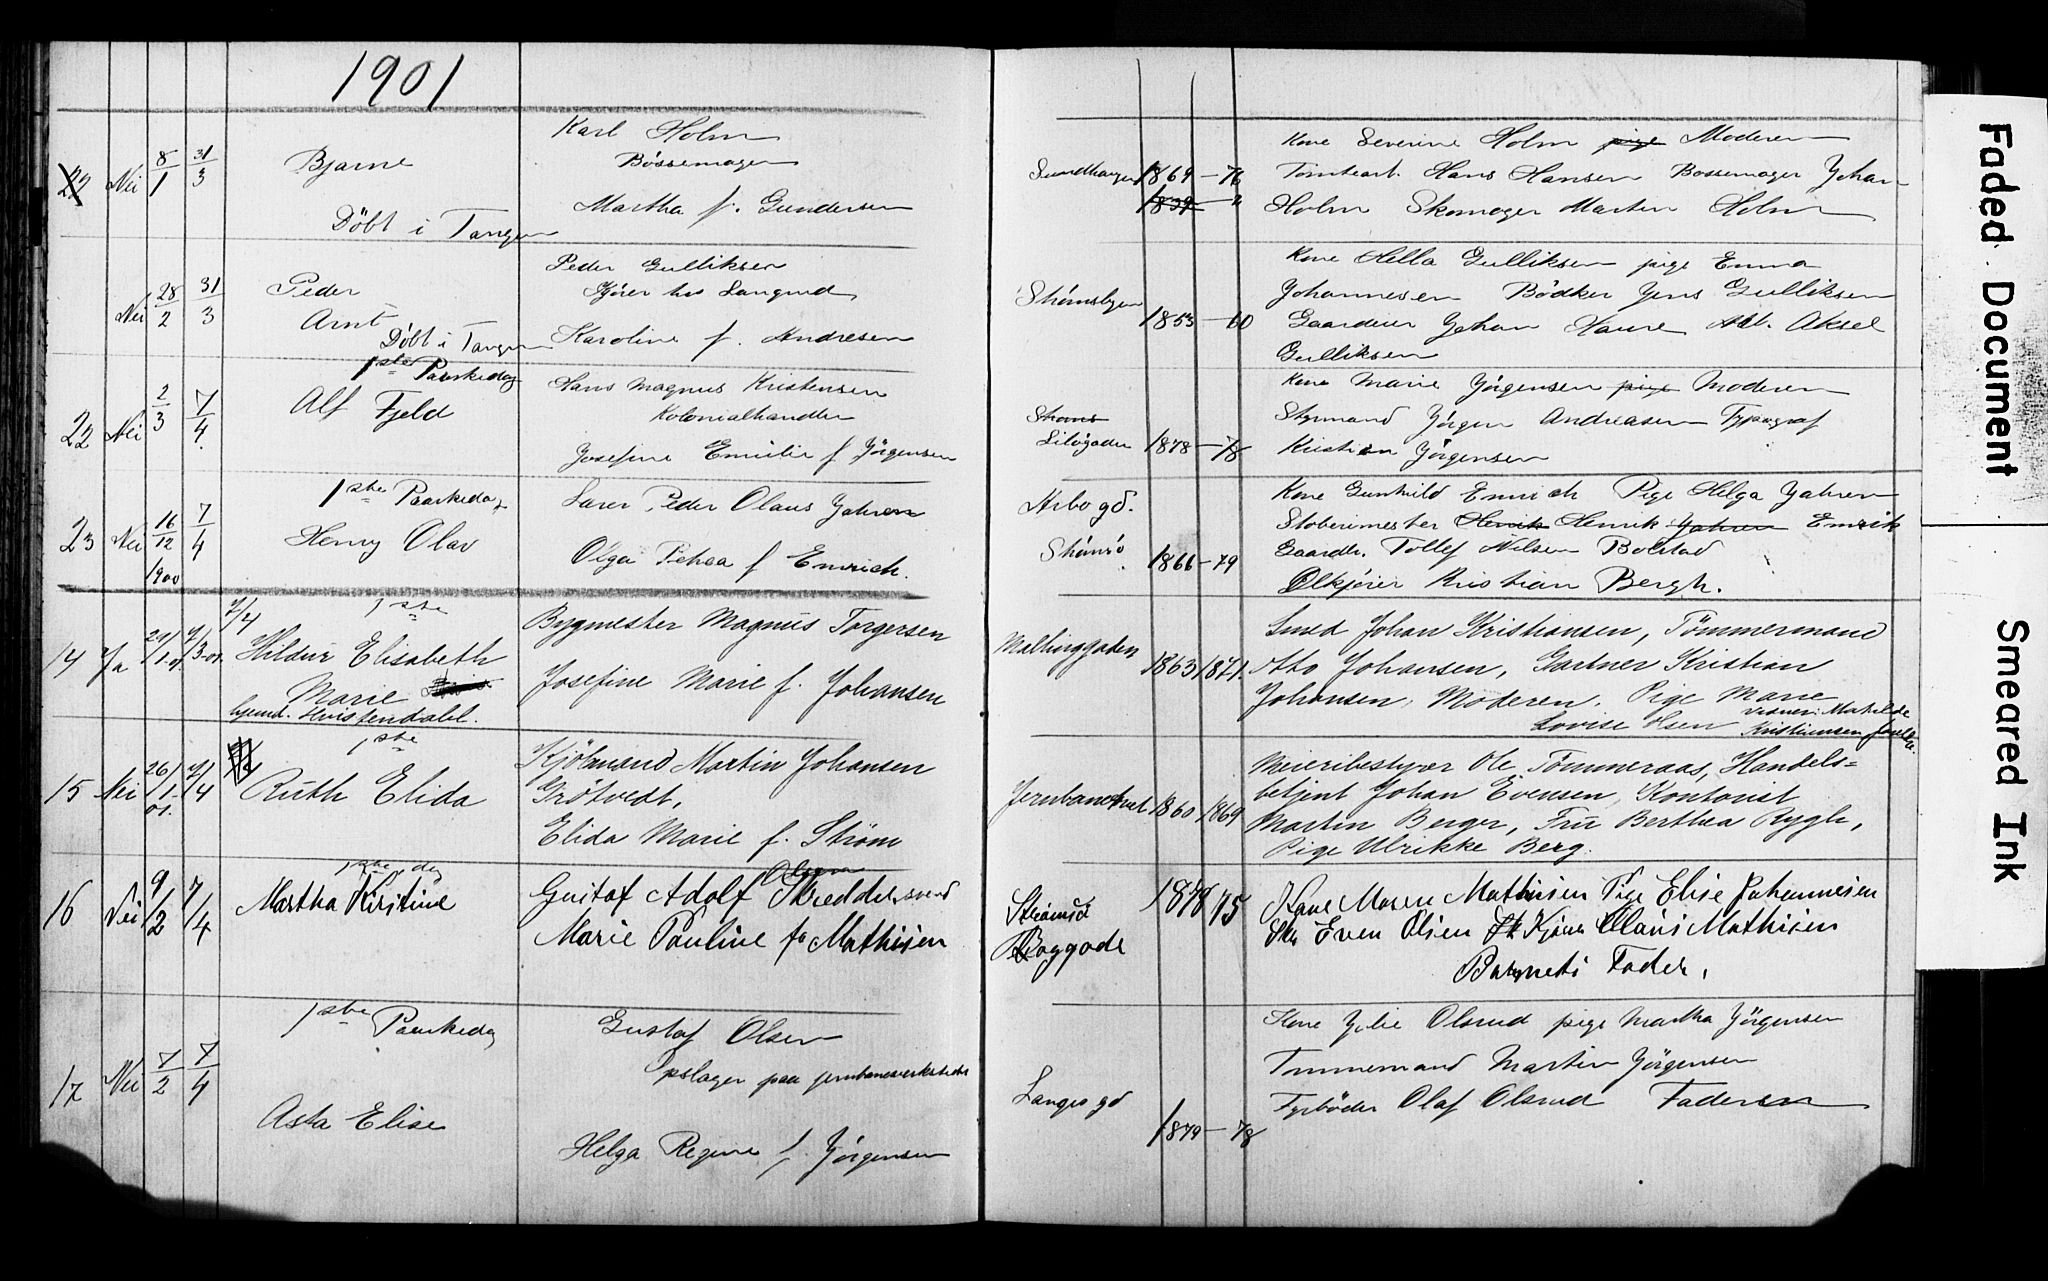 1901
22 Nei 8/1 31/3
Bjarne
Döbt i Tangen
Karl Holm
Bössemager
Martha f. Gundersen
Sundhaugen 1869-76
1839-"
Kone Severine Holm pige Moderen
Tomtearb. Hans Hansen Bossemager Johan
Holm Skomager Martin Holm
Nei 28/2 31/3
Peder
Arnt
Döbt i Tangen
Peder Gulliksen
Kjörer hos Langrud
Karoline f. Andresen
Strömsbyen 1853-60
Kone Hella Gulliksen pige Emma
Johannesen Bödker Jens Gulliksen
Gaardeier Johan Haure Arb. Aksel
Gulliksen
22 Nei 2/3 7/4
1ste Paaskedag
Alf Fjeld
Hans Magnus Kristensen
Kolonialhandler
Josefine Emilie f Jörgensen
Ströms
1878-78
Kone Marie Jörgensen pige Moderen
Styrmand Jörgen Andreasen Typograf
Kristian Jörgensen
23 Nei 16/12 1900 7/4
1ste Paaskedag
Henry Olav
Peder Olaus Jahren
Olga Petrea f Emrich.
Arbo gd.
Strömsö 1866-79
Kone Gunhild Emrich Pige Helga Jahren
Stoberimester Henrik Henrik Jahren Emrik
Gaardb. Tollef Nilsen Bolstad
Ölkjörer Kristian Bergh.
14 Ja
7/4
1ste
Hildur Elisabeth
Marie
hjemd. Hvistendahl.
Bygmester Magnus Torgersen
Josefine Marie f. Johansen
Mallinggaden 1863 1871.
Smed Johan Kristiansen, Tömmermand
Otto Johansen, Gartner Kristian
Johansen, Moderen. Pige Marie
Lovise Olsen
Kristiansen
15 Nei 26/1-01. 7/4
1ste
Ruth Elida
Kjöbmand Martin Johansen
Grötvedt,
Elida Marie f. Ström
1860 1869
Meieribestyrer Ole Tömmeraas, Handels=
betjent Johan Evensen, Kontorist
Martin Berger, Fru Berthea Rygh,
Pige Ulrikke Berg.
16 Nei 9/2 7/4
1ste dag
Martha Kristine
Olsen
Gustaf Adolf Skreddersvend
Marie Pauline fø Mathisen
Strömsö
Boggade
1878 75
Kone Maren Mathisen Pige Elise Johannesen
Even Olsen Kjörer Olaus Mathisen
Barnets Fader,
17 Nei 7/2 7/4
1ste Paaskedag
Asta Elise
Gustaf Olsen
Opslager paa jernbaneverkstedet
Helga Regine f. Jörgensen
Langes gd
1879-78
Kone Julie Olsrud pige Martha Jörgensen
Tommemand Martin Jörgensen
Fyrböder Olaf Olsrud Faderen
Faded Document
Smeared Ink